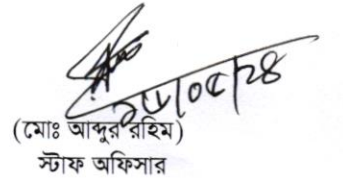 (মোঃ আব্দুর রহিম)
স্টাফ অফিসার